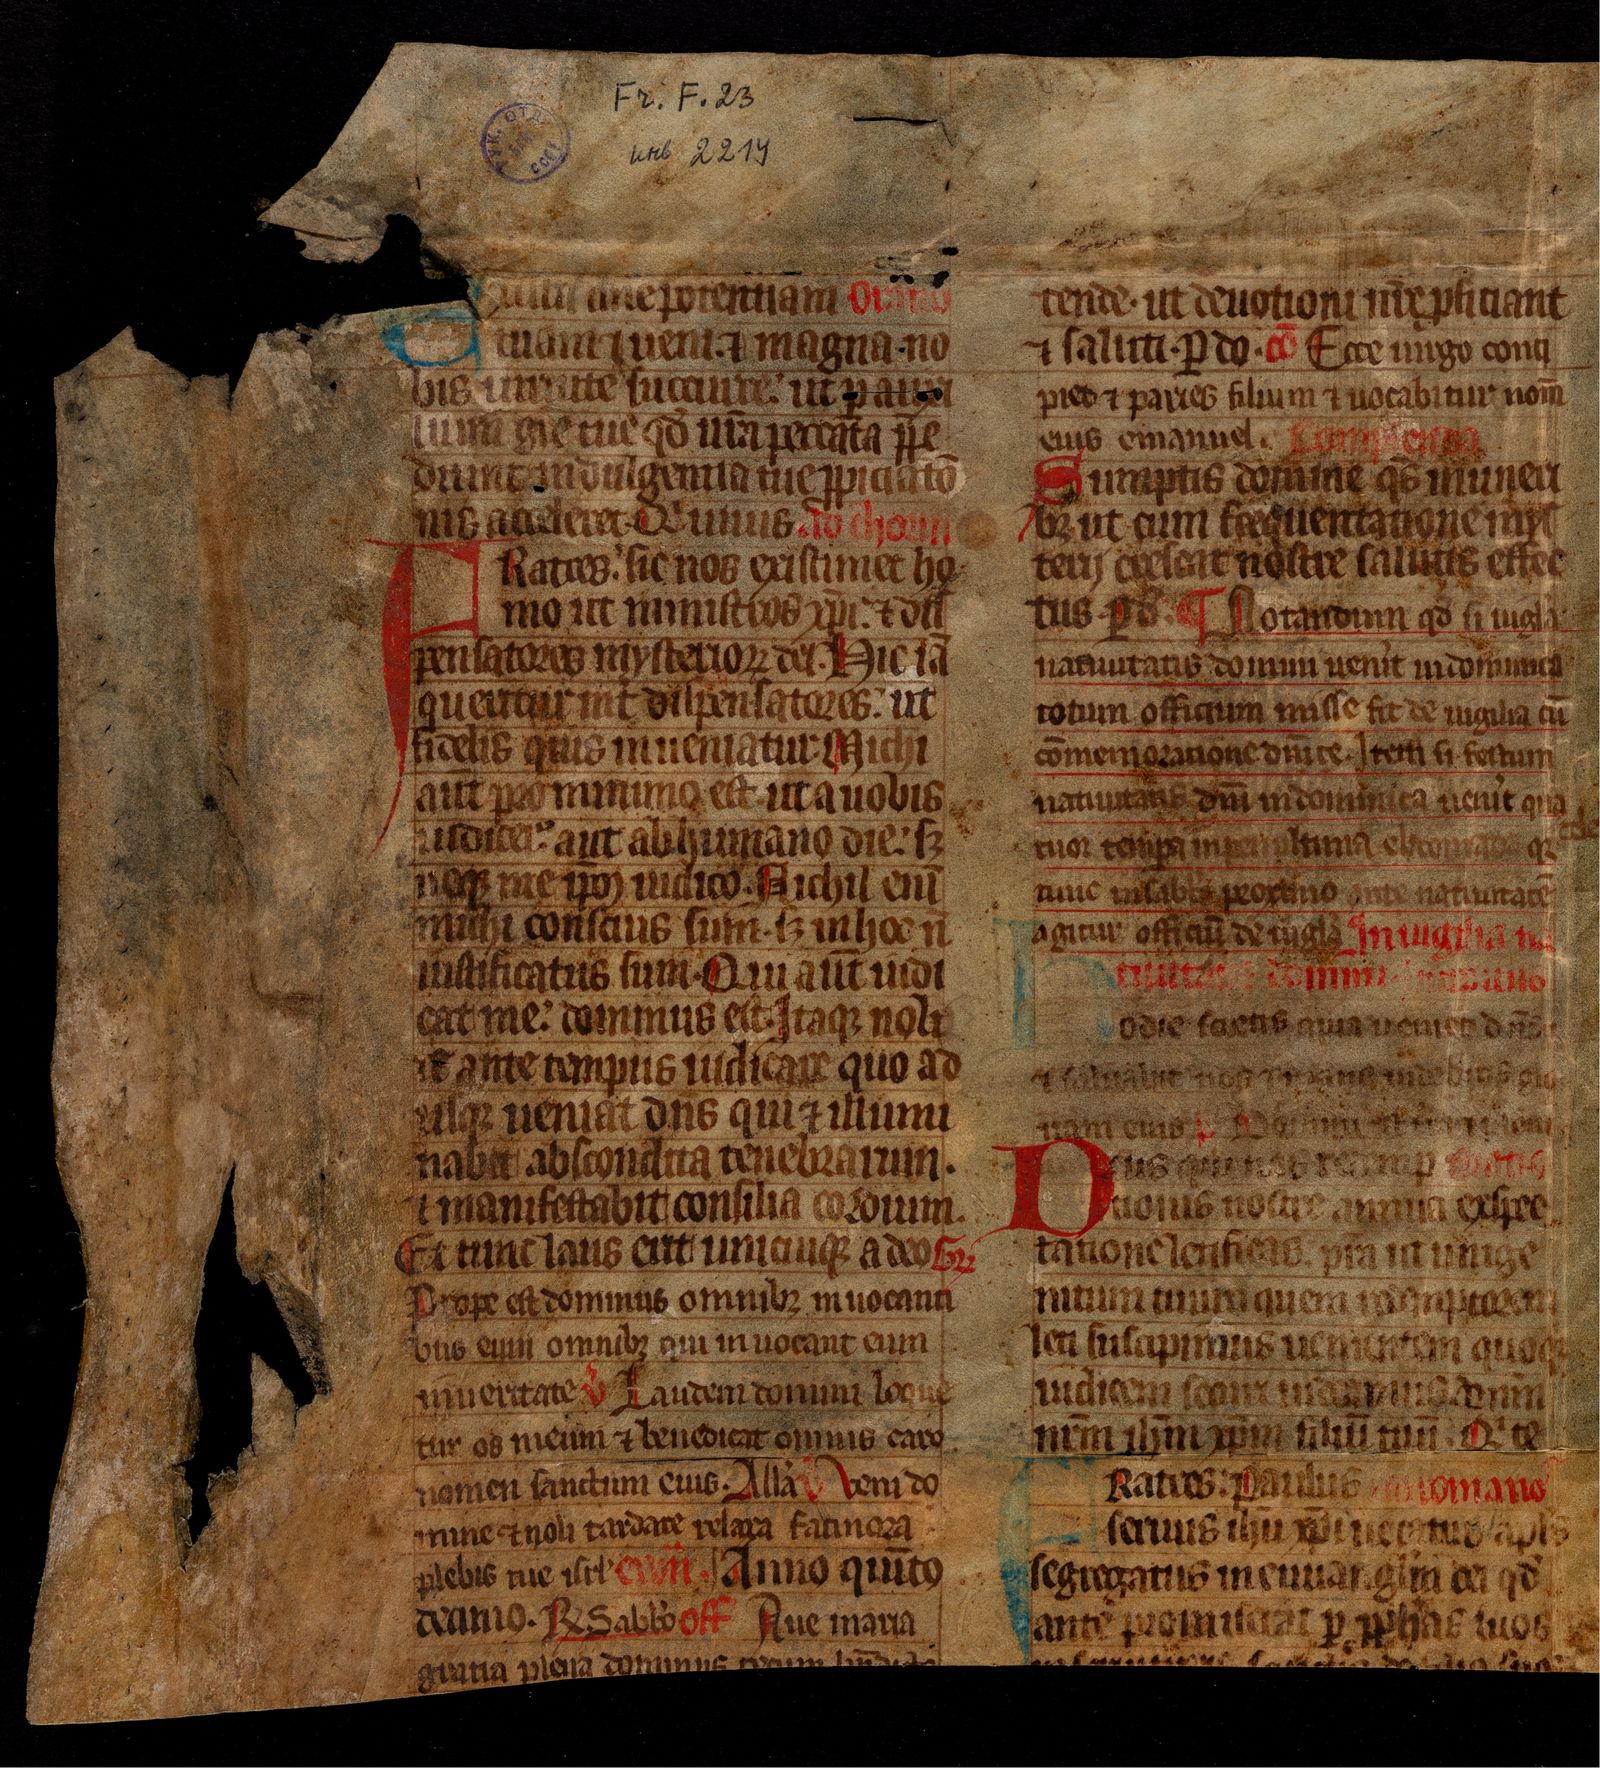 Fr. F. 23
инв 2219
domine potentiam Oratio
tuam ⁊ ueni ⁊ magna no
bis uirtute succurre ut p auxi
lium gr̄e tue qd̾ nr̄a peccata ppe
diunt indulgentia tue ppiciatō
nis acceleret Q̾ uiuis ad chorin
Ratres sic nos existimet ho
mo ut ministros xp̄i ⁊ dis
pensatores mysterioꝝ dei. Hic iā
queritur int̾ dispensatores ut
fidelis quis inueniatur Michi
aut pro minimo est ut a uobis
iudicer aut ab humano die sꝫ
neqꝫ me ipm̄ iudico. Nichil enī
michi conscius sum sꝫ in hoc n̄
iustificatus sum Qui aūt iudi
cat me dominus est Itaqꝫ noli
te ante tempus iudicare quo ad
usqꝫ ueniat dn̄s qui ⁊ illumi
nabit abscondita tenebrarum.
⁊ manifestabit consilia cordium.
Et tunc laus erit unicuiqꝫ a deo Gꝝ
Prope est dominus omnibꝫ inuocanti
bus eum omnibꝫ qui inuocant eum
in ueritate V Laudem domini loque
tur os meum ⁊ benedicat omnis caro
nomen sanctum eius. Allā V Veni do
mine ⁊ noli tardare relaxa facinora
plebis tue isrl̾ ewn̄. Anno quīto
decimo. R Sabb̾o off Aue maria
gratia plena dominus tecum
tende ut deuotioni nr̄e pficiant
⁊ saluti p do cō Ecce uirgo conci
piet ⁊ pariet filium ⁊ uocabitur nom̄
eius emanuel. Complenda
Sumptis domine qs̄ muneri
bꝫ ut cum frequentatione mys
terij crescat nostre salutis effec
tus p d. ¶ Notandum qd̾ si uigl̾a
natiuitatis domini uen̾it in dominica
totum officium misse fit de uigilia cū
cōmemoratione dn̄ice. Item si festum
natiuitatis dn̄i in dominica uen̾it qua
tuor tempa in penultima ebdomada qꝫ
tunc in sabb̾o proximo ante natiuitatē
agitur officiū de uigl̾a In uigilia na
tiuitatis domini
odie scietis quia ueniet dn̄s
⁊ saluabit nos ⁊ mane uidebitis glo
riam eius
D eus qui nos redemp
tionis nostre annua expec
tatione letificas. pr̄a ut unige
nitum tuum quem redemptorem
leti suscipimus uenientem quoqꝫ
iudicem securi uideamus dn̄m
nr̄m ih̄m xp̄m filiū tuū Q̾ te
Ratres: Paulus ad romanos
seruus ih̄u xp̄i uocatus apl̄s
segregatus in euuangliū dei qd̾
ante promiserat p pphās suos